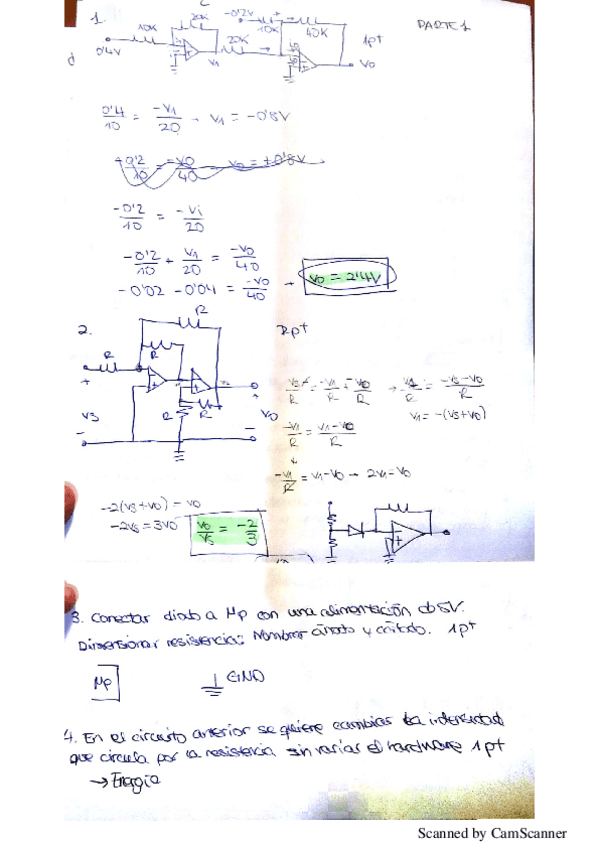 1.
10K
20K
-0'2V
10K
40K
PARTE 1
0'4V
V1
20K
1pt
Vo
0'4/10 = -V1/20 → V1 = -0'8V
+0'2/10 = -Vo/40 → Vo = +0'8V
-0'2/10 = -Vi/20
-0'2/10 + V1/20 = -Vo/40
-0'02 - 0'04 = -Vo/40 → Vo = 2'4V
2.
R
2pt
R
R
+
+
Vs
R
R
Vo
-
-
V1 = -(Vs+Vo)
-V1/R = V1-Vo/R
-V1/R = V1-Vo → 2V1 = Vo
-2(Vs+Vo) = Vo
-2Vs = 3Vo
Vo/Vs = -2/3
3. Conectar diodo a Mp con una alimentación de 5V.
Dimensionar resistencia. Nombrar ánodo y cátodo. 1pt
Mp
GND
4. En el circuito anterior se quiere cambiar la intensidad
que circula por la resistencia sin variar el hardware 1pt
→ Energía
Scanned by CamScanner